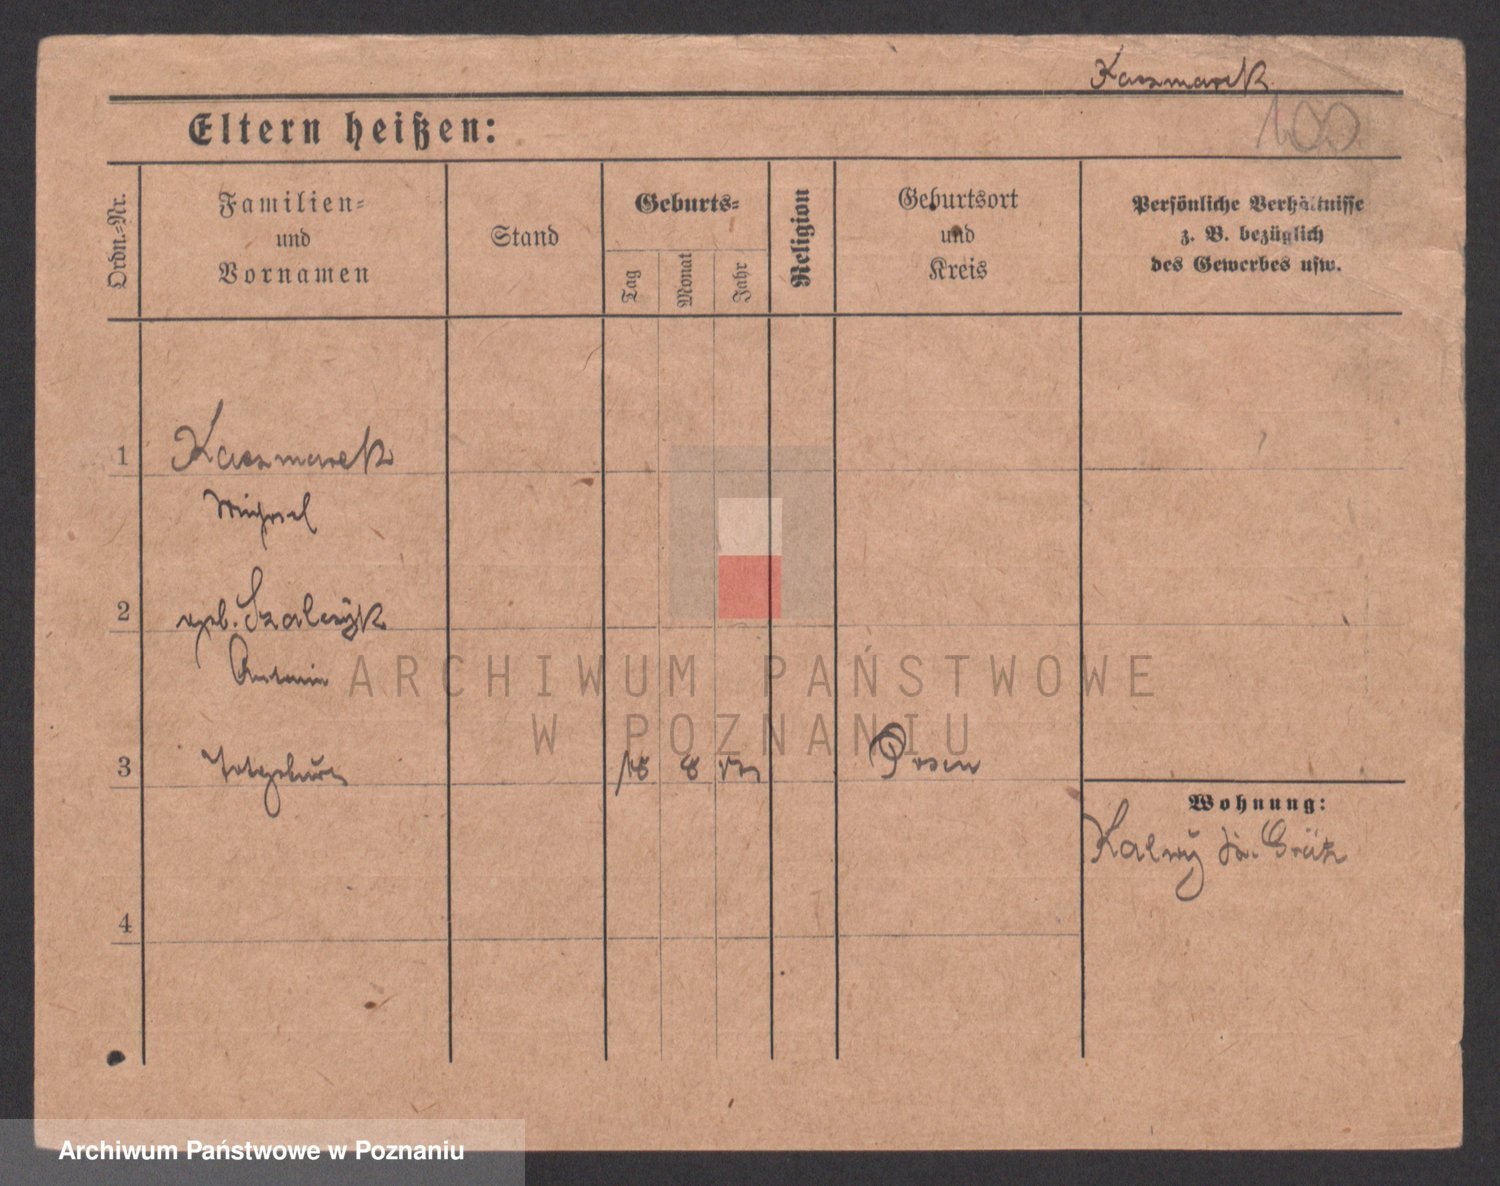 Kaczmarek
100
Eltern heißen:
Ordn.-Nr.
Familien-
und
Vornamen
Stand
Geburts-
Tag
Monat
Jahr
Religion
Geburtsort
und
Kreis
Persönliche Verhältnisse
z. B. bezüglich
des Gewerbes usw.
1
Kaczmarek
Michael
2
geb. Szalczyk
Antonie
ARCHIWUM PAŃSTWOWE
W POZNANIU
3
Totgeburt
18 8
Posen
Wohnung:
Kalwy Kr. Grätz
4
Archiwum Państwowe w Poznaniu